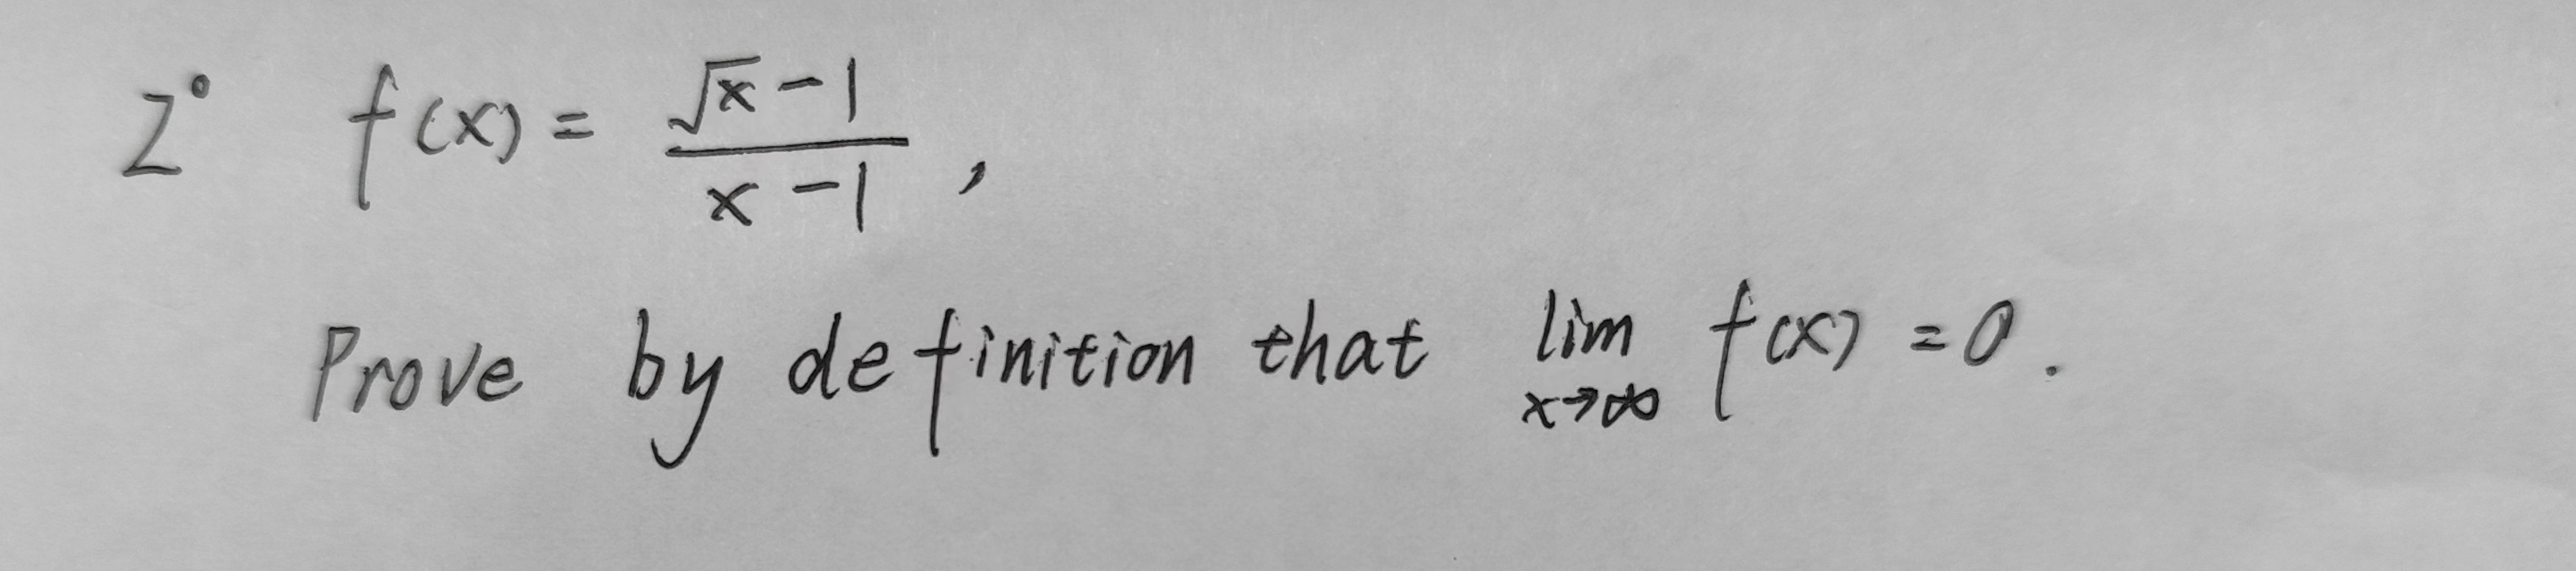 2° f(x) = \frac{\sqrt{x}-1}{x-1},
Prove by definition that \lim_{x→∞} f(x) = 0.